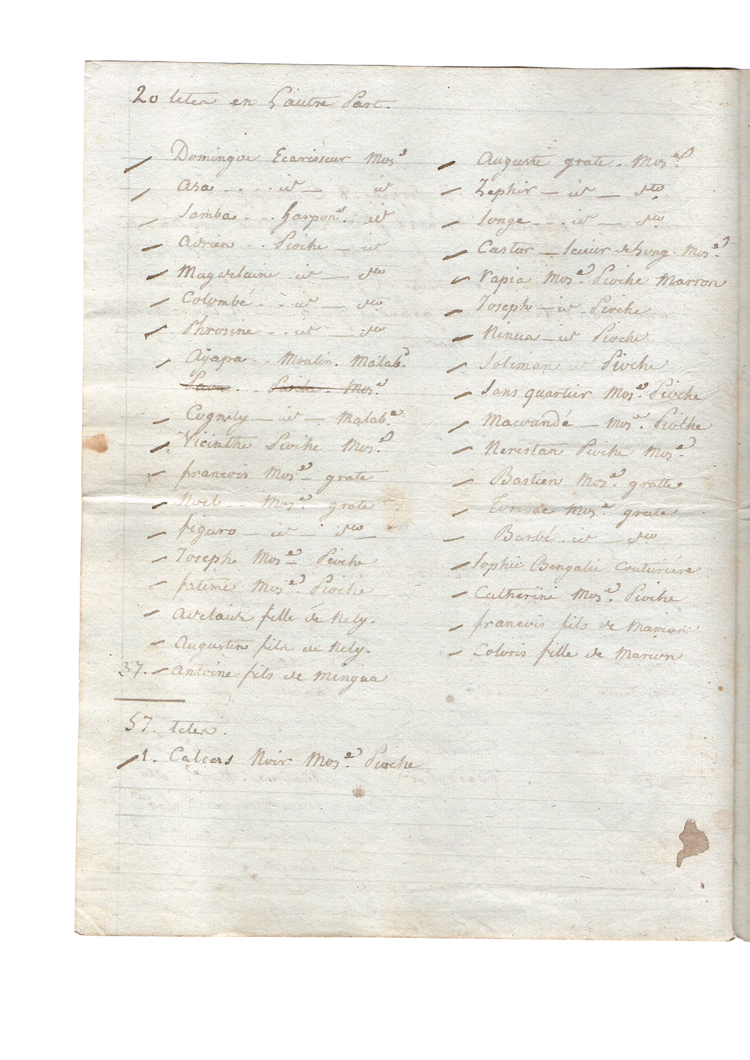 20 tetes en L'autre Part.
Domingue Ecarisseur Mos.e
Aza - - . . id — id
Samba . . id
Adrien . . Pioche — id
Magdelaine id — dto
Colombé - - id — dto
Phrosine - . id — dto
Ajapa - Moulin. Malab.e
Pioche. Mos.e
Cognoly — id — Malab.e
Vicinthe Pioche Mos.e
francois Mos.e — grate
Noël . . Mos.e grate
figaro — id — dto
Joseph Mos.e — Pioche
fatime Mos.e Pioche
Adelaide fille de Nely.
Augustin fils de Nely.
37. Antoine fils de Mingua
57. tetes.
1. Noir Mos.e Pioche
Auguste grate . Mos.e
Zephir — id — dto
Songe — . id — dto
Castor — Scieur de long. Mos.e
Papia Mos.e Pioche Marron
Joseph — id . Pioche
Ninua — id Pioche
Soliman id Pioche
Sans quartier Mos.e Pioche
Macoundé — mos.e Pioche
Nerestan Pioche Mos.e
Bastien Mos.e gratte
Tombac Mos.e grate
Barbé . id — dto
Sophie Bengalie Couturiére
Catherine Mos.e Pioche
francois fils de Marion
Coloris fille de Marion